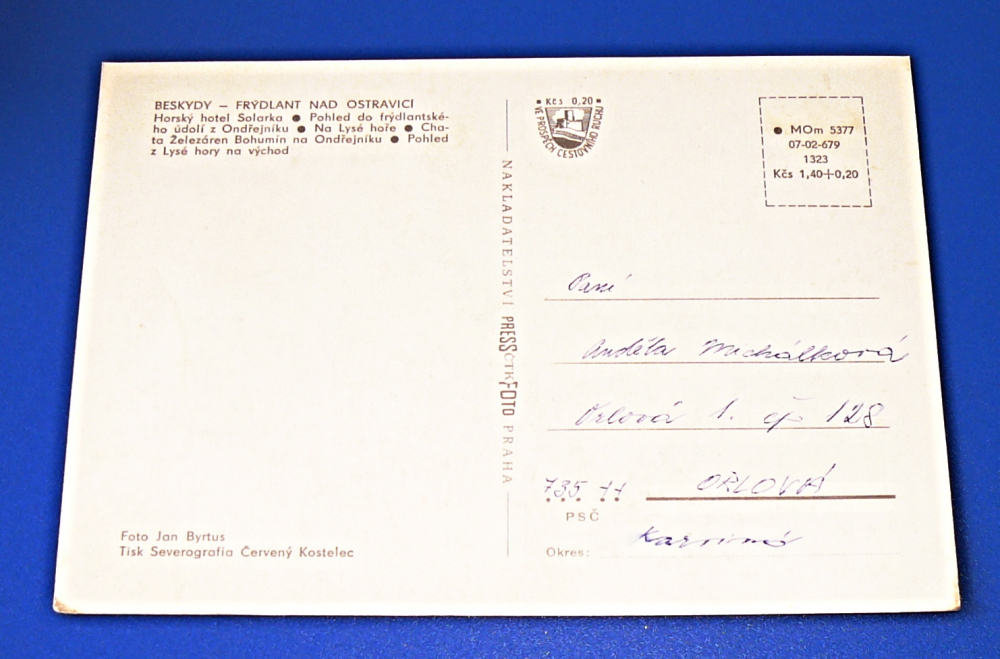 BESKYDY – FRÝDLANT NAD OSTRAVICÍ
Horský hotel Solarka ● Pohled do frýdlantské-
ho údolí z Ondřejníku ● Na Lysé hoře ● Cha-
ta Železáren Bohumín na Ondřejníku ● Pohled
z Lysé hory na východ
Foto Jan Byrtus
Tisk Severografia Červený Kostelec
NAKLADATELSTVÍ PRESSČTKFOTO PRAHA
Kčs 0,20
VE PROSPĚCH CESTOVNÍHO RUCHU
● MOm 5377
07-02-679
1323
Kčs 1,40+0,20
Paní
Anděla Michálková
Orlová 1. čp 128
735 11 ORLOVÁ
PSČ
Okres: Karviná